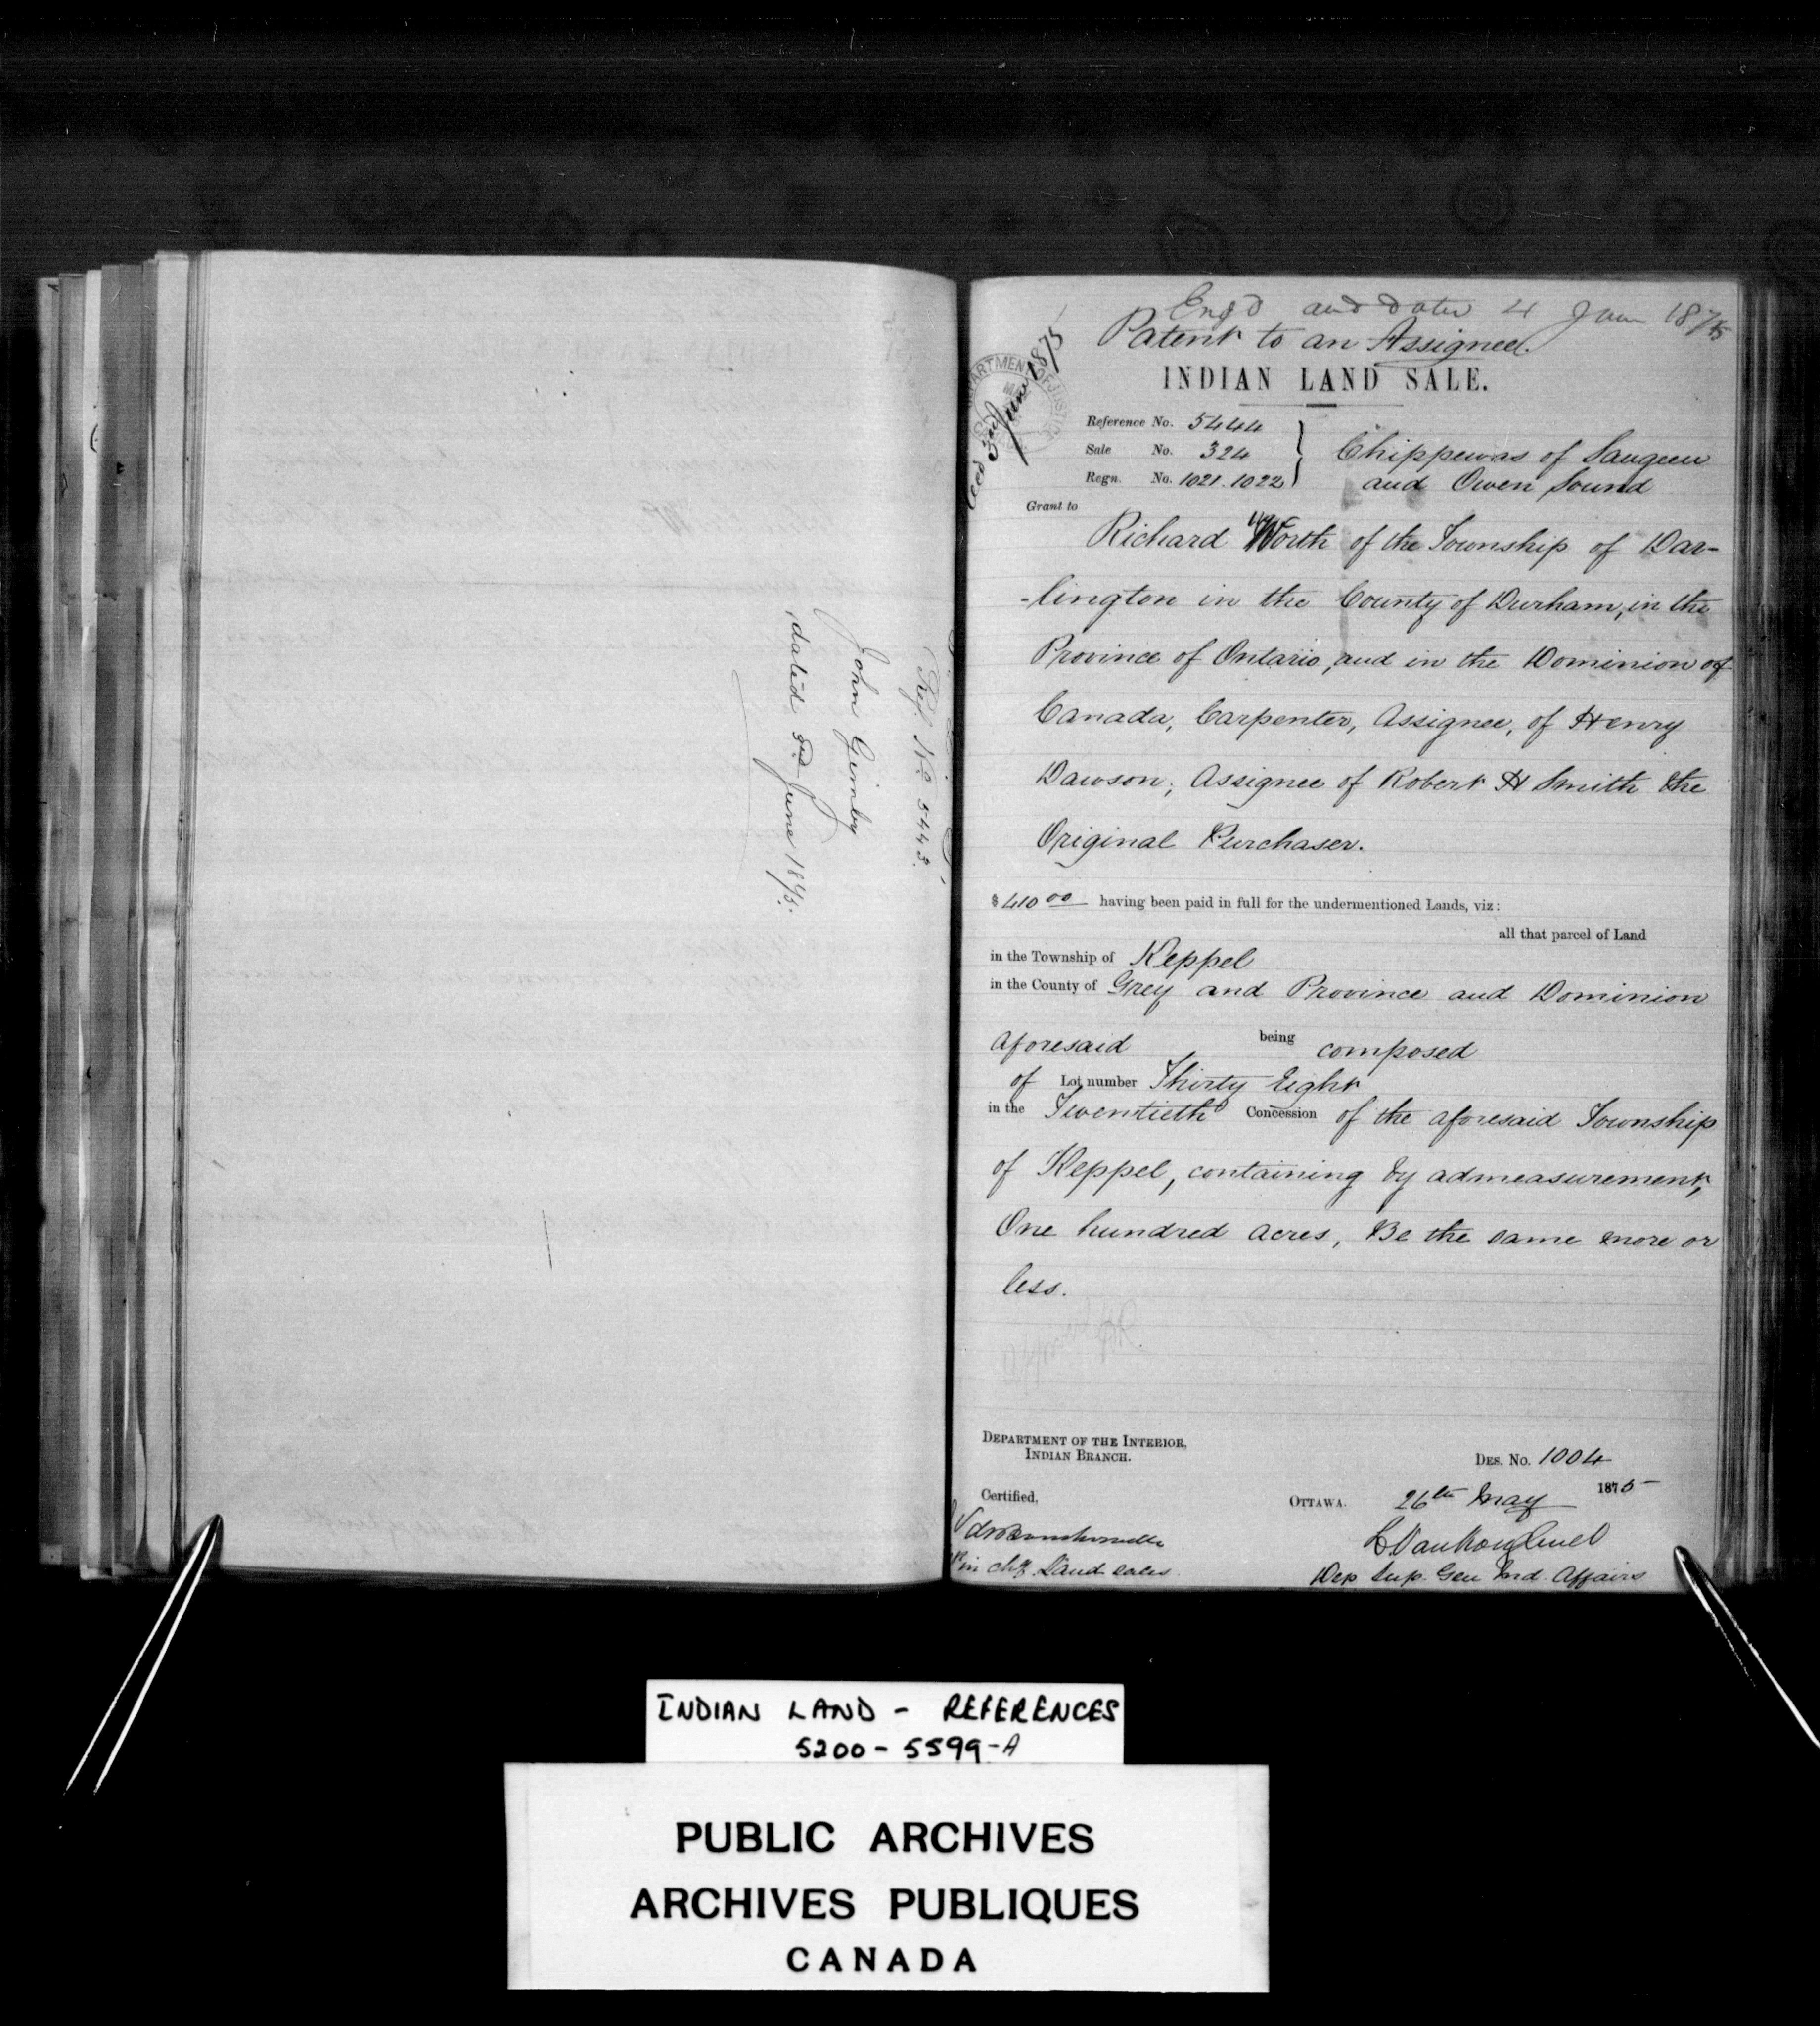 Ref. No 5443.
John Gimby
dated 3rd June 1875.
Engd and dated 4 June 1875
Patent to an Assignee.
INDIAN LAND SALE.
3rd June 1875
DEPARTMENT OF JUSTICE
Reference No. 5444
Sale No. 324
Regn. No. 1021.1022
Chippewas of Saugeen
and Owen Sound
Grant to
Richard Worth of the Township of Dar-
-lington in the County of Durham, in the
Province of Ontario, and in the Dominion of
Canada, Carpenter, Assignee, of Henry
Dawson; Assignee of Robert H Smith the
Original Purchaser.
$410 00 having been paid in full for the undermentioned Lands, viz:
all that parcel of Land
in the Township of Keppel
in the County of Grey and Province and Dominion
aforesaid being composed
of Lot number Thirty Eight
in the Twentieth Concession of the aforesaid Township
of Keppel, containing by admeasurement,
One hundred acres, Be the same more or
less.
DEPARTMENT OF THE INTERIOR,
INDIAN BRANCH.
DES. NO. 1004
Certified,
OTTAWA. 26th May 1875
in chg. Land Sales
L VanKoughnet
Dep Sup. Gen Ind. Affairs
INDIAN LAND - REFERENCES
5200 - 5599-A
PUBLIC ARCHIVES
ARCHIVES PUBLIQUES
CANADA